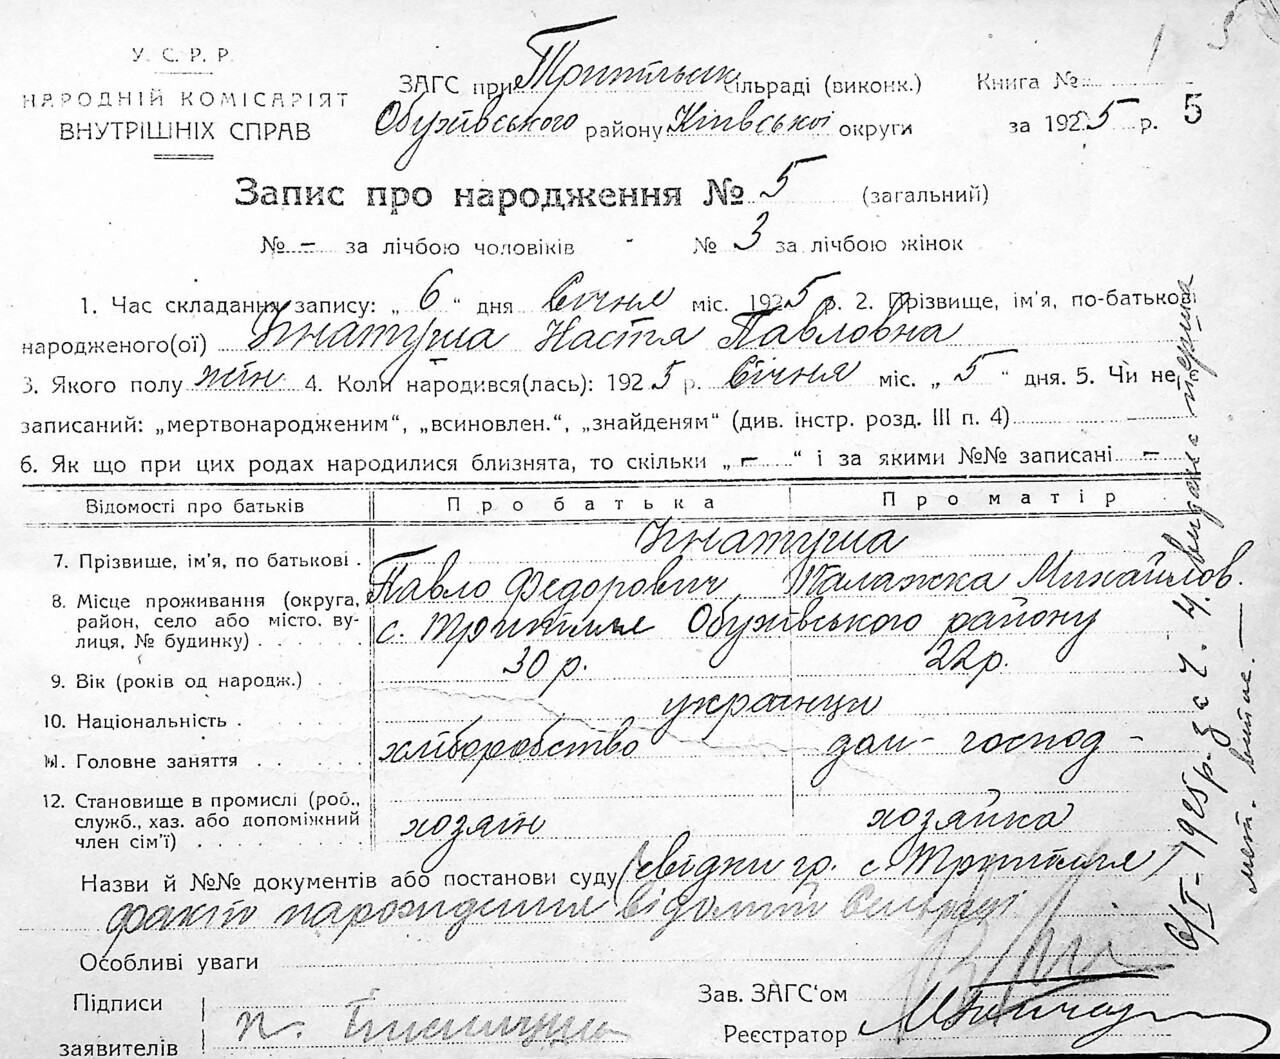 У. С. Р. Р.
НАРОДНІЙ КОМІСАРІЯТ
ВНУТРІШНІХ СПРАВ
ЗАГС при Трипільск сільраді (виконк.)
Обухівського району Київської округи
Книга № 1
за 1925 р. 5
Запис про народження № 5 (загальний)
№ – за лічбою чоловіків № 3 за лічбою жінок
1. Час складання запису: „ 6 “ дня Січня міс. 1925 р. 2. Прізвище, ім'я, по-батькові
народженого(ої) Ігнатуша Настя Павловна
3. Якого полу жін 4. Коли народився(лась): 1925 р. Січня міс. „ 5 “ дня. 5. Чи не
записаний: „мертвонародженим“, „всиновлен.“, „знайденям“ (див. інстр. розд. III п. 4)
6. Як що при цих родах народилися близнята, то скільки „ – “ і за якими №№ записані –
Відомості про батьків Про батька Про матір
Ігнатуша
7. Прізвище, ім'я, по батькові . Павло Федорович Малажка Михайлов.
8. Місце проживання (округа,
район, село або місто, ву-
лиця, № будинку) . . . . . .
с. Трипілля Обухівського району
9. Вік (років од народж.) . . 30 р. 22 р.
10. Національність . . . . . . українци
11. Головне заняття . . . . . хліборобство дом- господ-
12. Становище в промислі (роб.,
служб., хаз. або допоміжний
член сім'ї) . . . . . . . .
хозяїн хозяйка
Назви й №№ документів або постанови суду (свідки гр. с Трипілля)
факт нарождения відомий Сільраді
Особливі уваги
Підписи
заявителів
Зав. ЗАГС'ом
Реєстратор
6/I–1925 р. за ч. 4 видана перша
мет. випис.